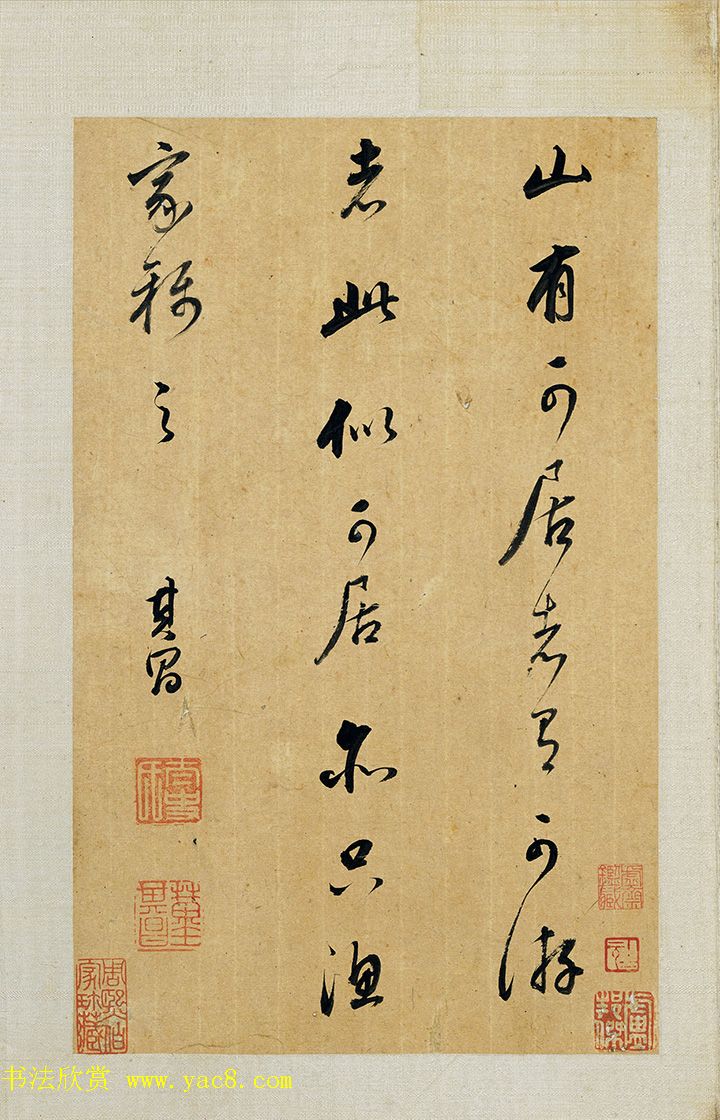 山有可居者有可游
者此似可居亦只漁
家稱之
其昌
书法欣赏 www.yac8.com